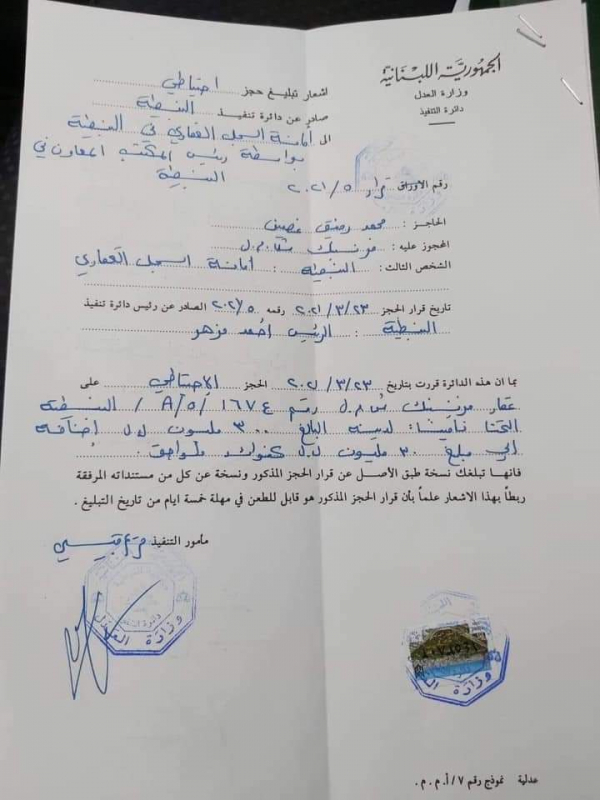 الجمهورية اللبنانية
وزارة العدل
دائرة التنفيذ
اشعار تبليغ حجز احتياطي
صادر عن دائرة تنفيذ النبطية
الى أمانة السجل العقاري في النبطية
بواسطة رئيس المكتب المعاون في
النبطية
رقم الاوراق ٢٠٢١/٥
الحاجز : محمد رفيق غصين
المحجوز عليه : فرنسبنك ش.م.ل
الشخص الثالث : النبطية : أمانة السجل العقاري
تاريخ قرار الحجز ٢٠٢١/٣/٢٣ رقمه ٢٠٢١/٥ الصادر عن رئيس دائرة تنفيذ
النبطية : الرئيس أحمد مزهر
بما ان هذه الدائرة قررت بتاريخ ٢٠٢١/٣/٢٣ الحجز الإحتياطي على
عقار فرنسبنك ش.م.ل رقم ١٦٧٤/٥/A/ النبطية
التحتا تأمينا لدينه البالغ ٣٠٠ مليون ل.ل إضافة
إلى مبلغ ٣٠ مليون ل.ل كفوائد ولواحق.
فانها تبلغك نسخة طبق الأصل عن قرار الحجز المذكور ونسخة عن كل من مستنداته المرفقة
ربطاً بهذا الاشعار علماً بأن قرار الحجز المذكور هو قابل للطعن في مهلة خمسة ايام من تاريخ التبليغ .
مأمور التنفيذ
وزارة العدل
عدلية نموذج رقم ٧/أ.م.م.